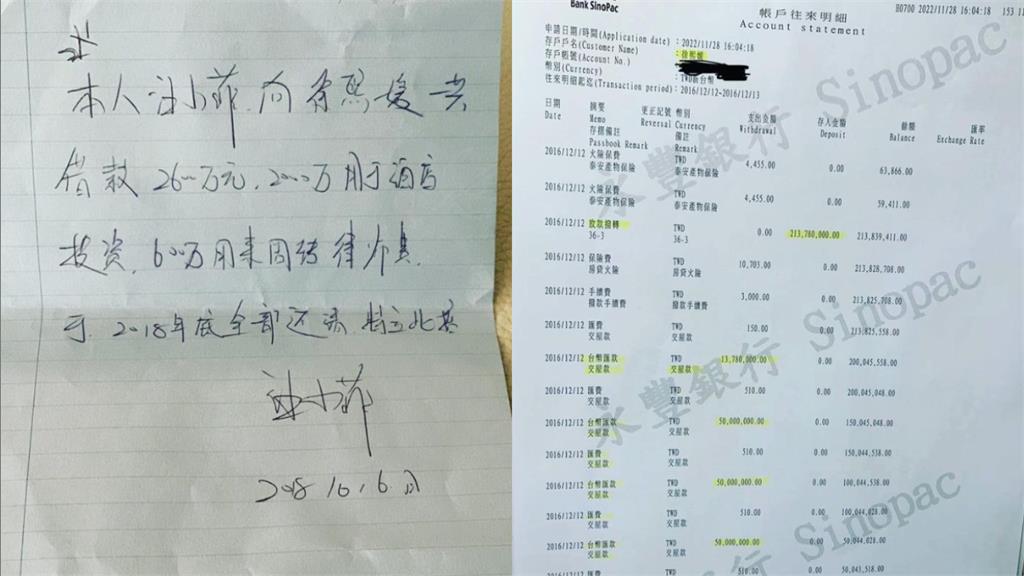 本人汪小菲,向徐熙媛共
借款 2600万元,2000万用于酒店
投资,600万用来周转律师
于 2018年底全部还清 特立此
汪小菲
2018 10, 6日
Bank SinoPac
H0700 2022/11/28 16:04:18 153 11
帳戶往來明細
Account statement
申請日期/時間(Application date) : 2022/11/28 16:04:18
存戶戶名(Customer Name) : 徐熙媛
存戶帳號(Account No.) :
幣別(Currency) : TWD新台幣
往來明細起迄(Transaction period) : 2016/12/12~2016/12/13
日期 摘要 更正記號 幣別 支出金額 存入金額 餘額 匯率
Date Memo Reversal Currency Withdrawal Deposit Balance Exchange Rate
存摺備註 備註
Passbook Remark Remark
2016/12/12 火險保費 TWD 4,455.00 0.00 63,866.00
泰安產物保險 泰安產物保險
2016/12/12 火險保費 TWD 4,455.00 0.00 59,411.00
泰安產物保險 泰安產物保險
2016/12/12 放款撥轉 TWD 0.00 213,780,000.00 213,839,411.00
36-3 36-3
2016/12/12 保險費 TWD 10,703.00 0.00 213,828,708.00
房貸火險 房貸火險
2016/12/12 手續費 TWD 3,000.00 0.00 213,825,708.00
撥款手續費 撥款手續費
2016/12/12 匯費 TWD 150.00 0.00 213,825,558.00
交屋款 交屋款
2016/12/12 台幣匯款 TWD 13,780,000.00 0.00 200,045,558.00
交屋款 交屋款
2016/12/12 匯費 TWD 510.00 0.00 200,045,048.00
交屋款 交屋款
2016/12/12 台幣匯款 TWD 50,000,000.00 0.00 150,045,048.00
交屋款 交屋款
2016/12/12 匯費 TWD 510.00 0.00 150,044,538.00
交屋款 交屋款
2016/12/12 台幣匯款 TWD 50,000,000.00 0.00 100,044,538.00
交屋款 交屋款
2016/12/12 匯費 TWD 510.00 0.00 100,044,028.00
交屋款 交屋款
2016/12/12 台幣匯款 TWD 50,000,000.00 0.00 50,044,028.00
交屋款 交屋款
2016/12/12 匯費 TWD 510.00 0.00 50,043,518.00
永豐銀行 Sinopac
永豐銀行 Sinopac
永豐銀行 Sinopac